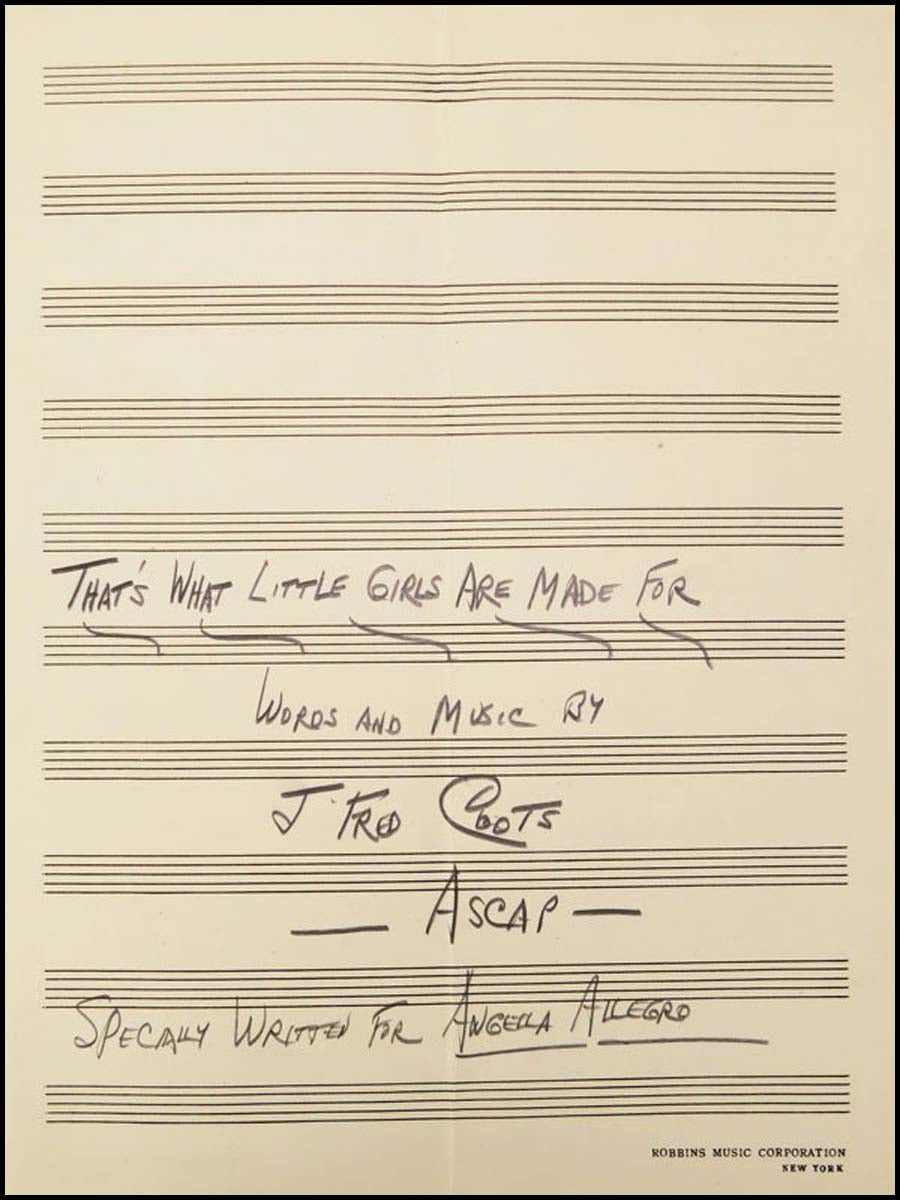 THAT'S WHAT LITTLE GIRLS ARE MADE FOR
WORDS AND MUSIC BY
J. FRED COOTS
— ASCAP —
SPECIALLY WRITTEN FOR ANGELLA ALLEGRO
ROBBINS MUSIC CORPORATION
NEW YORK